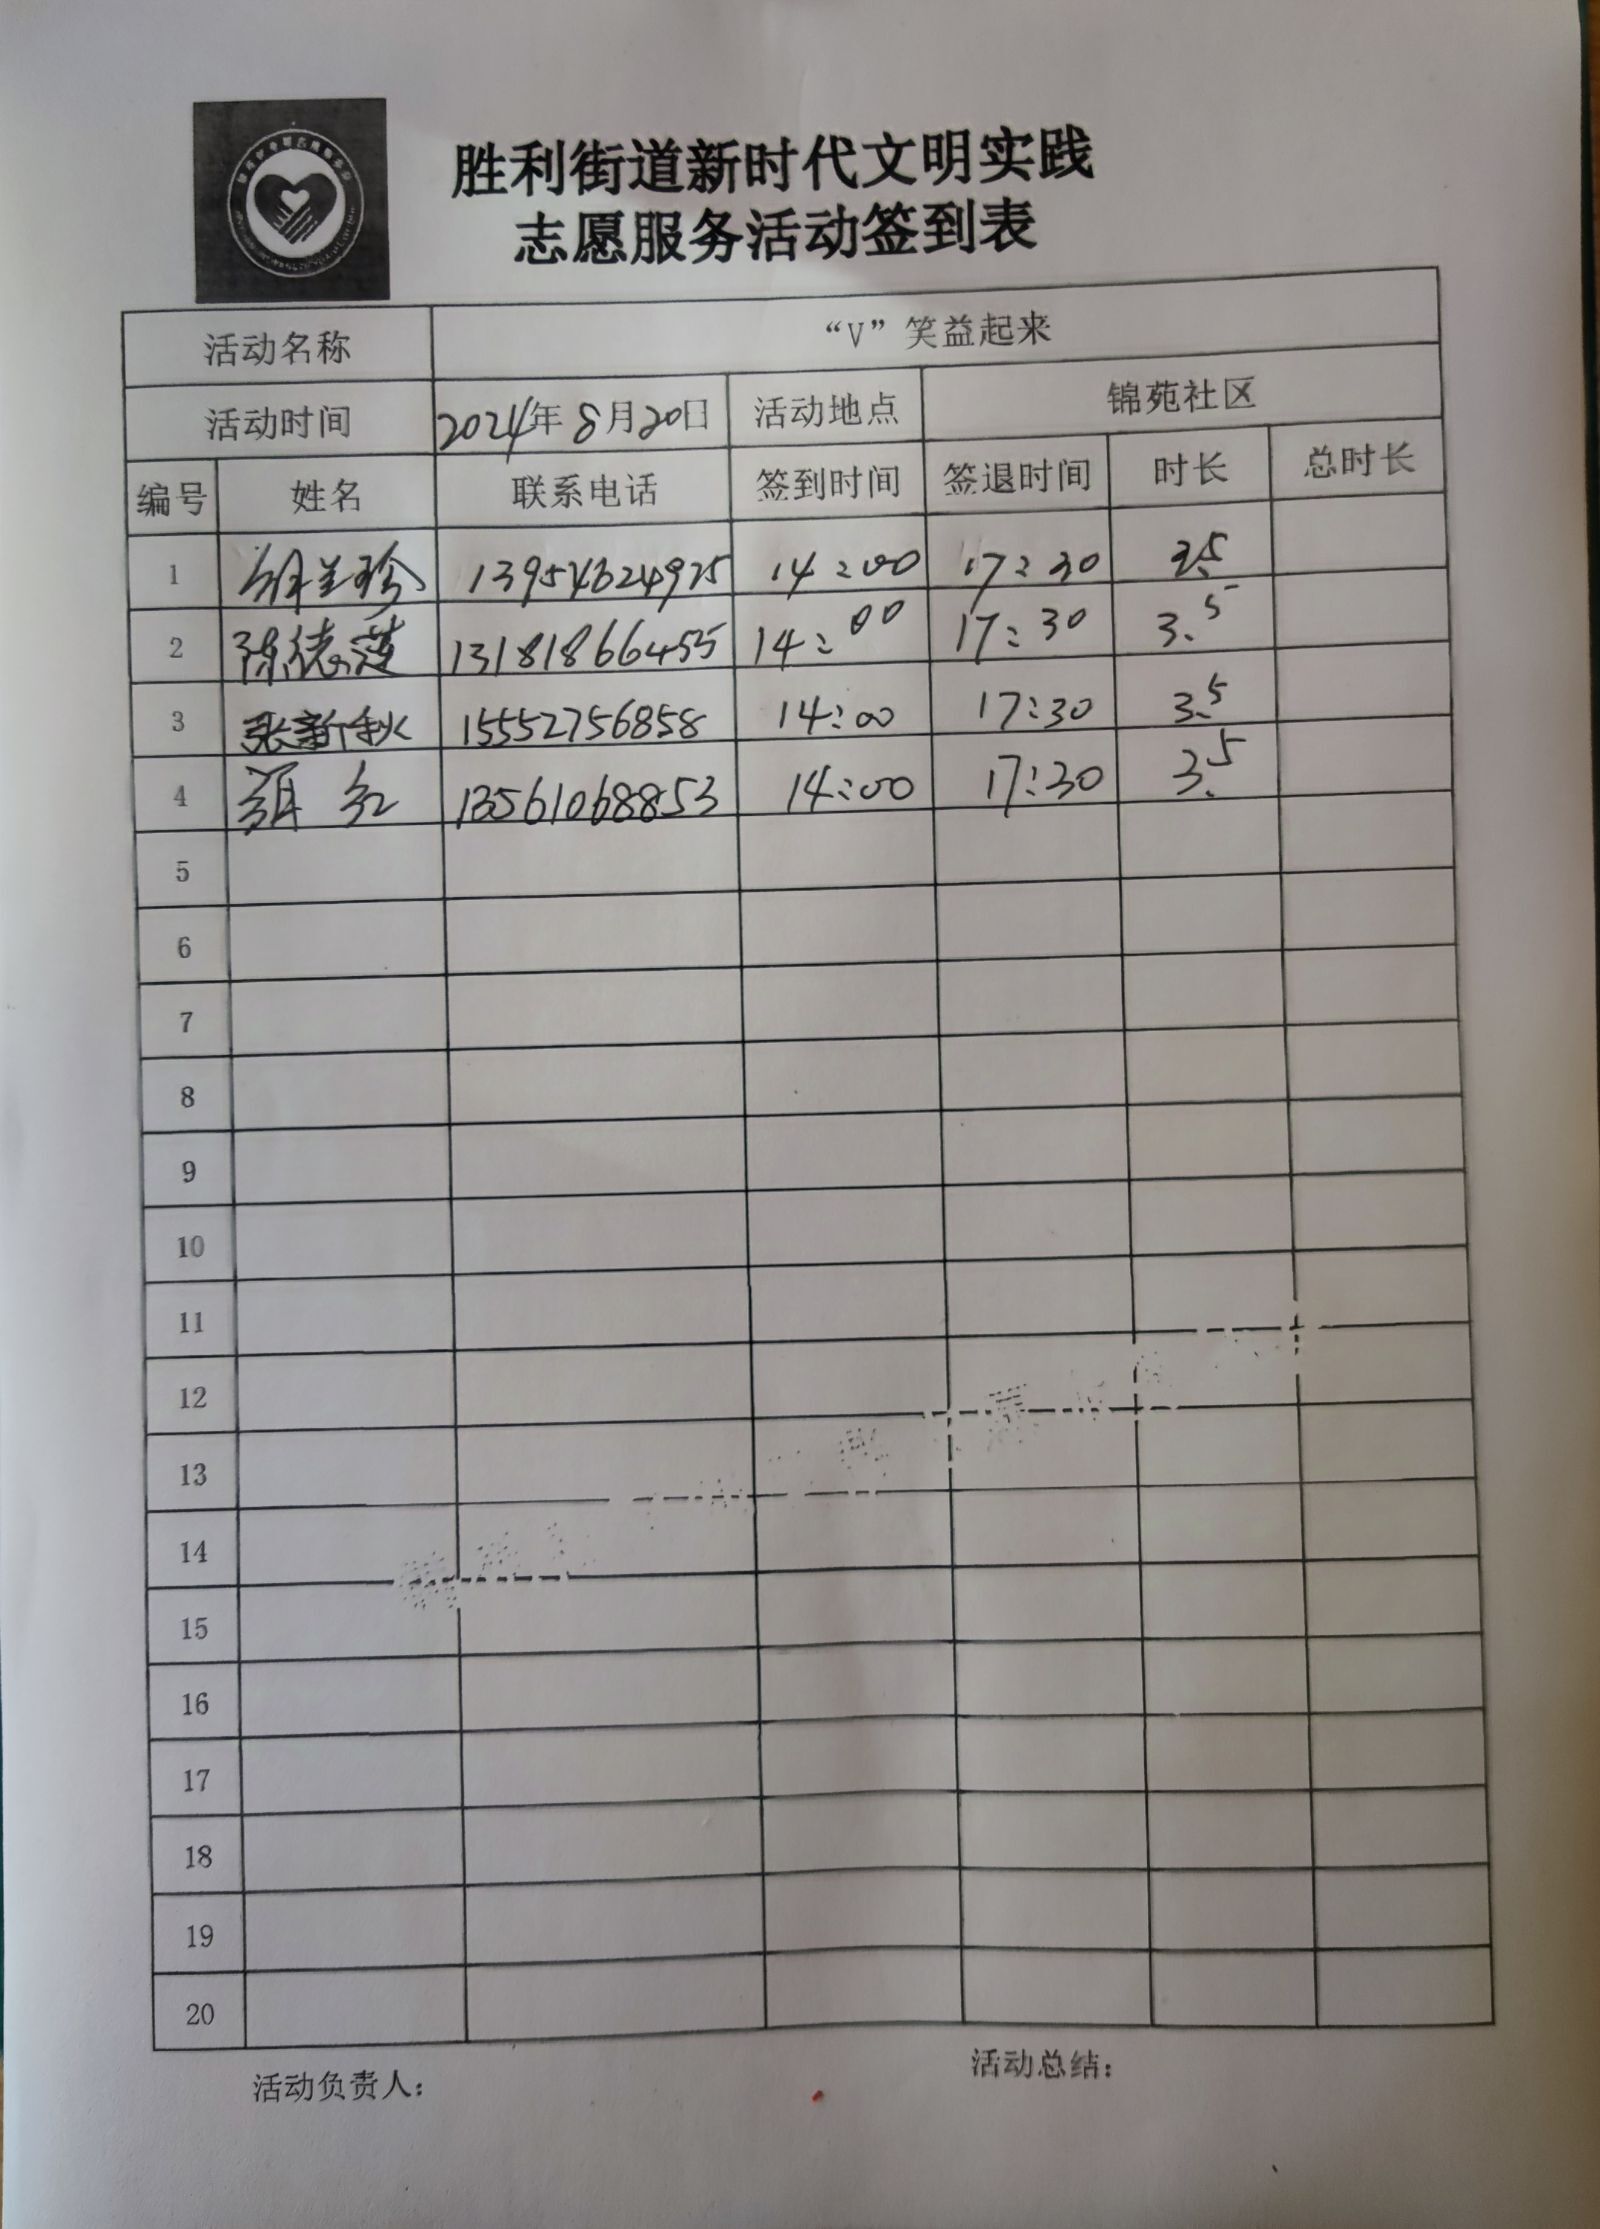 胜利街道新时代文明实践
志愿服务活动签到表
活动名称 “V”笑益起来
活动时间 2024年8月20日 活动地点 锦苑社区
编号 姓名 联系电话 签到时间 签退时间 时长 总时长
1 胡兰珍 13954624925 14:00 17:30 3.5
2 陈德莲 13181866455 14:00 17:30 3.5
3 张新秋 15552756858 14:00 17:30 3.5
4 红 13561068853 14:00 17:30 3.5
5
6
7
8
9
10
11
12
13
14
15
16
17
18
19
20
活动负责人: 活动总结: